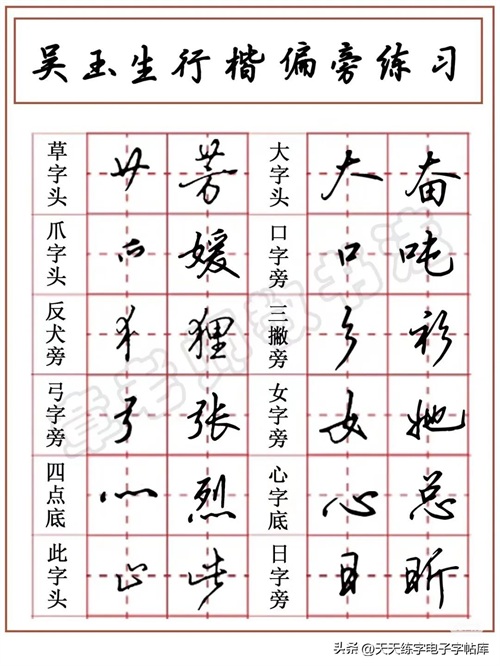 吴玉生行楷偏旁练习
草字头 艹 芳 大字头 大 奋
爪字头 爫 媛 口字旁 口 吨
反犬旁 犭 狸 三撇旁 彡 衫
弓字旁 弓 张 女字旁 女 她
四点底 灬 烈 心字底 心 总
此字头 止 些 日字旁 日 昕
头条@天天练字电子字帖库